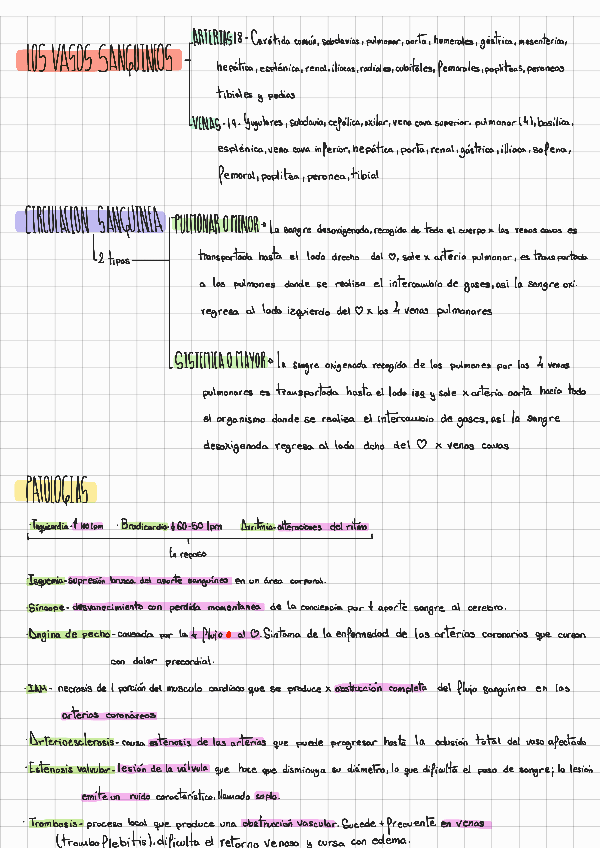 LOS VASOS SANGUINEOS
ARTERIAS 18- Carótida común, subclavias, pulmonar, aorta, humerales, gástrica, mesenterica,
hepática, esplénica, renal, iliacas, radiales, cubitales, femorales, popliteas, peroneas
tibiales y pedias
VENAS-19- Yugulares, subclavia, cefálica, axilar, vena cava superior, pulmonar (4), basilica,
esplénica, vena cava inferior, hepática, porta, renal, gástrica, illiaca, safena,
femoral, poplitea, peronea, tibial
CIRCULACION SANGUINEA
2 tipos
PULMONAR O MENOR • La sangre desoxigenada, recogida de todo el cuerpo x las venas cavas es
transportada hasta el lado drecho del ♡, sale x arteria pulmonar, es transportada
a los pulmones donde se realisa el intercambio de gases, asi la sangre oxi.
regresa al lado izquierdo del ♡ x las 4 venas pulmonares
SISTEMICA O MAYOR • La sangre oxigenada recogida de los pulmones por las 4 venas
pulmonares es transportada hasta el lado izq y sale x arteria aorta hacia todo
el organismo donde se realiza el intercambio de gases, asi la sangre
desoxigenada regresa al lado dcho del ♡ x venas cavas
PATOLOGIAS
· Taquicardia-↑ 100 lpm · Bradicardia-↓ 60-50 lpm Arritmia-alteraciones del ritmo
En reposo
· Isquemia-supresión brusca del aporte sanguíneo en un área corporal.
· Síncope- desvanecimiento con perdida momentanea de la conciencia por ↓ aporte sangre al cerebro.
· Angina de pecho-causada por la ↓ flujo al ♡. Sintoma de la enfermedad de las arterias coronarias que cursan
con dolor precordial.
· IAM- necrosis de 1 porción del musculo cardiaco que se produce x obstrucción completa del flujo sanguineo en las
arterias coronáreas
· Arterioesclerosis- causa estenosis de las arterias que puede progresar hasta la oclusión total del vaso afectado
· Estenosis valvular- lesión de la válvula que hace que disminuya su diámetro, lo que dificulta el paso de sangre; la lesión
emite un ruido característico, llamado soplo.
· Trombosis- proceso local que produce una obstrucción vascular. Sucede + frecuente en venas
(tromboflebitis), dificulta el retorno venoso y cursa con edema.